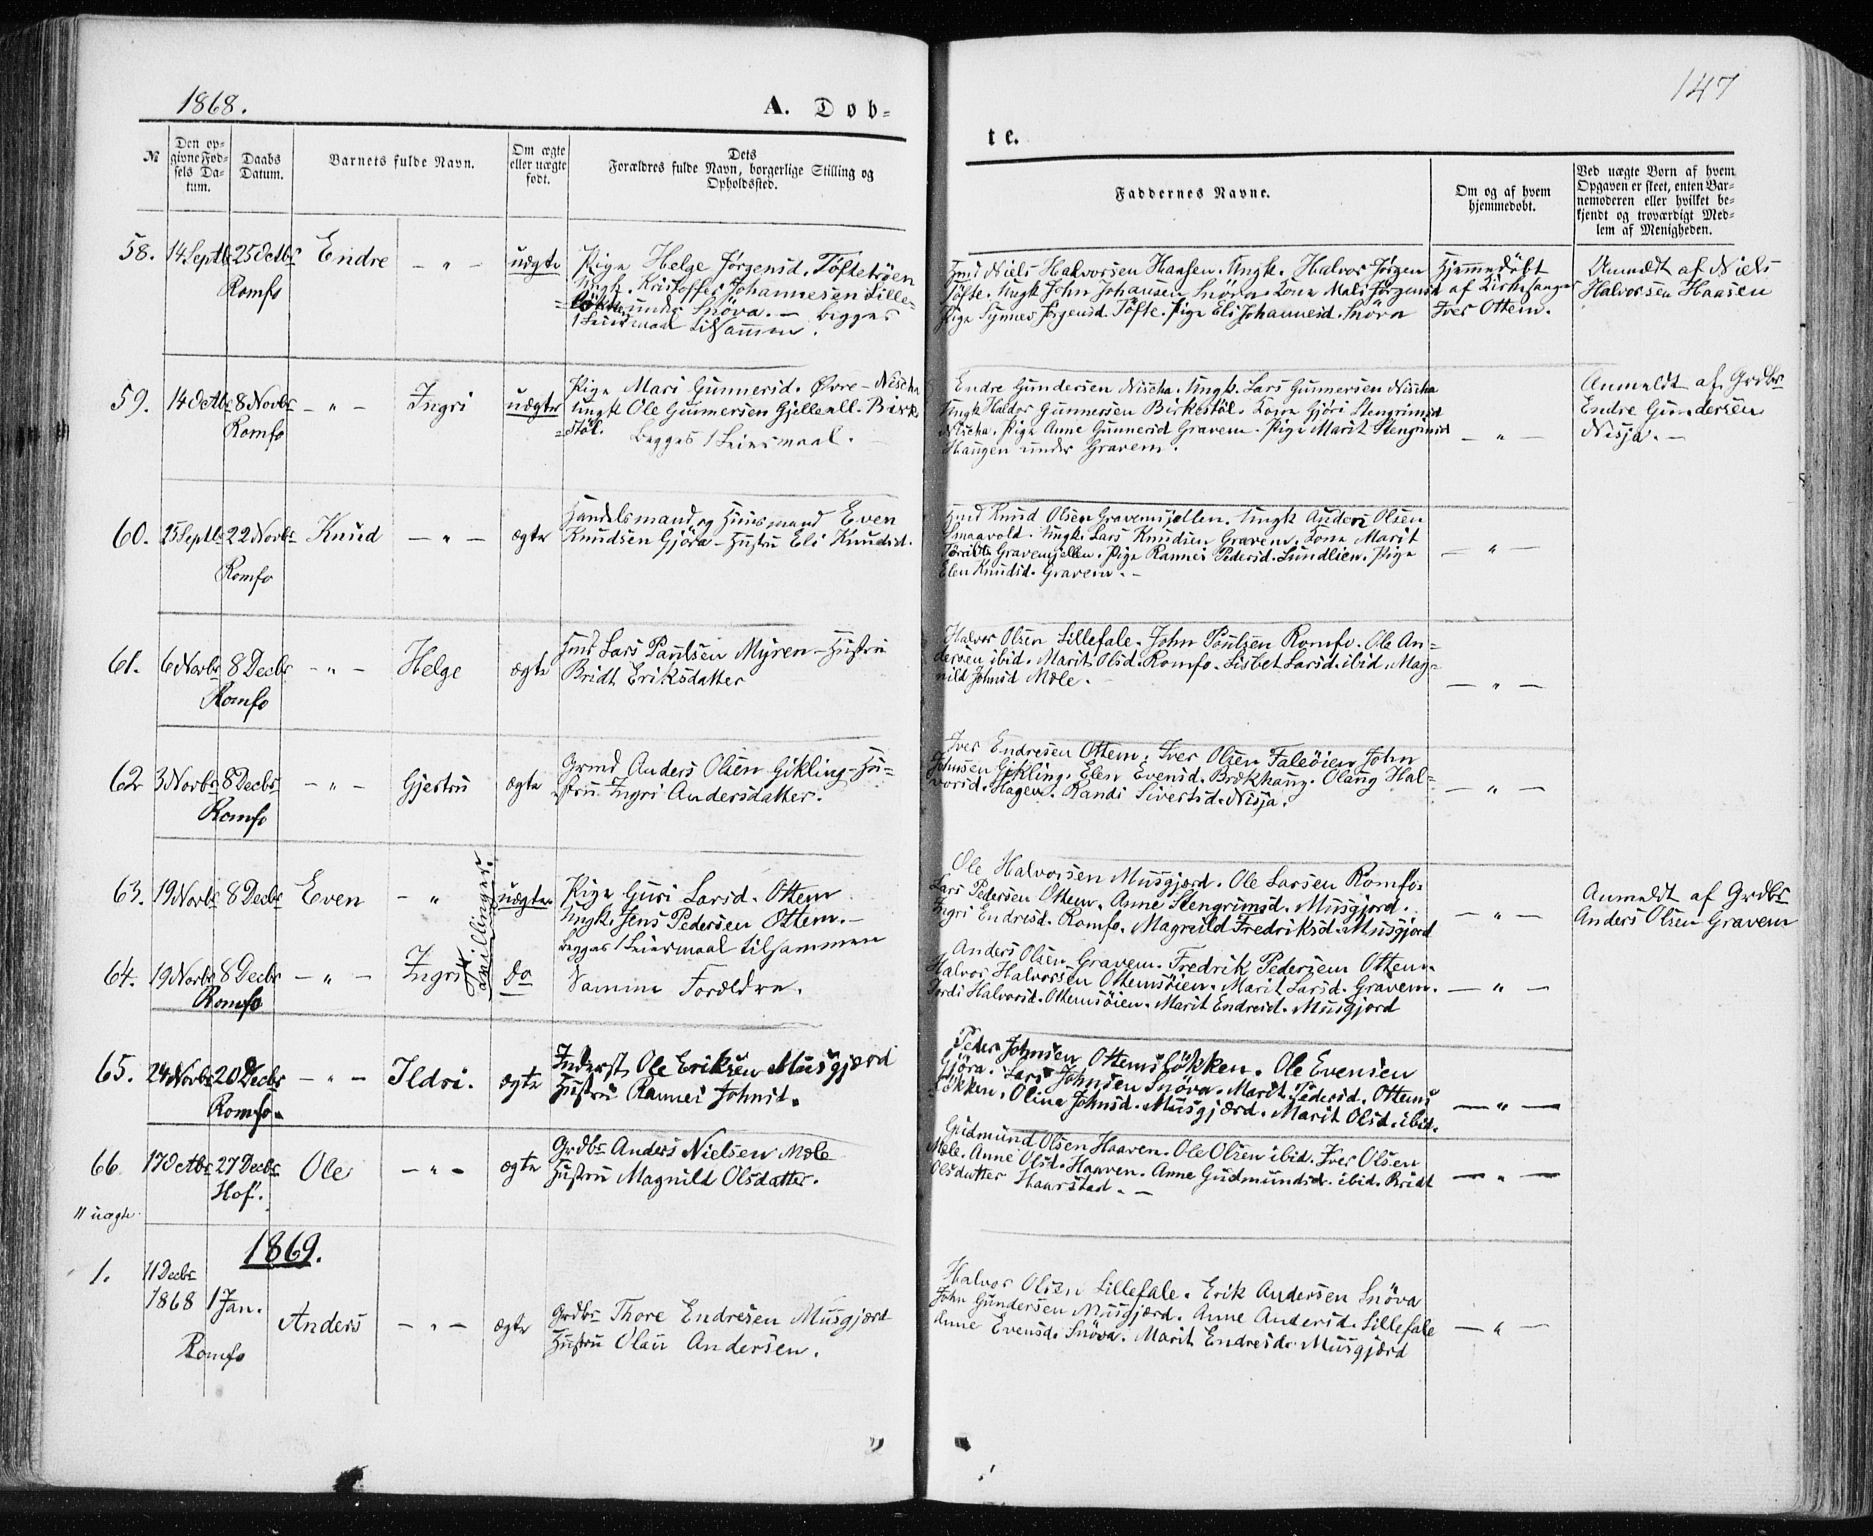 1868.
A. Døb-
te.
147
№
Den op-
givne Fød-
sels Da-
tum.
Daabs
Datum.
Barnets fulde Navn.
Om ægte
eller uægte
født.
Dets
Forældres fulde Navn, borgerlige Stilling og
Opholdssted.
Faddernes Navne.
Om og af hvem
hjemmedøbt.
Ved uægte Børn af hvem
Opgaven er skeet, enten Bar-
nemoderen eller hvilket be-
kjendt og troværdigt Med-
lem af Menigheden.
58. 14 Septb 25 Octbr Endre — " — uægte
Romfo
Pige Helge Jørgensd. Töftetrøen
Ungk. Kristoffer Johannesen Lille-
=løkken under Snöva. — begges
1 Leiermaal tilsammen.
Hmd Niels Halvorsen Haasen. Ungk. Halvor Jörgen
Töfte. Ungk John Johansen Snöva. Kone Mali Jörgensd
Pige Synnev Jörgensd. Töfte. Pige Eli Johannesd. Snöva
Hjemmedöbt
af Kirkesanger
Iver Ottem.
Anmeldt af Niels
Halvorsen Haasen
59. 14 Octbr 8 Novbr — " — Ingri uægte
Romfo
Pige Mari Gunnersd. Øvre-Nischa
Ungk Ole Gunnersen Gjellenll. Birke
=stöl. begges 1 Leiermaal.
Endre Gundersen Nischa. Ungk. Lars Gunnersen Nischa
Ungk Haldor Gunnersen Birkestöl. Kone Gjöri Stengrimsd
Nischa. Pige Anne Gunnersd Gravem. Pige Marit Stengrimsd
Haugen under Gravem.
— " —
Anmeldt af Grdbr
Endre Gundersen
Nisja. —
60. 25 Septb 22 Novbr Knud — " — ægte
Romfo
Handelsmand og Huusmand Even
Knudsen Gjöra - Hustru Eli Knudsd.
Hmd Knud Olsen Gravemsjellen. Ungk Anders Olsen
Smaavold. Ungk. Lars Knudsen Gravem. Kone Marit
Gravemsjellen. Pige Rannei Pedersd. Lundlien. Pige
Elen Knudsd. Gravem. —
— " —
61. 6 Novbr 8 Decbr — " — Helge ægte
Romfo
Hmd Lars Paulsen Myren - Hustru
Bridt Eriksdatter
Halvor Olsen Lillefale. John Poulsen Romfo. Ole An-
dersen ibid. Marit Olsd. Romfo. Lisbet Larsd. ibid. Mag-
nild Johnsd Mæle. —
— " —
62 3 Novbr 8 Decbr — " — Gjertru ægte
Romfo
Grmd Anders Olsen Gikling - Hu-
stru Ingri Andersdatter.
Iver Endresen Ottem. Iver Olsen Faleöien John
Johnsen Gikling. Elen Evensd. Brækhaug. Olaug Hal-
vorsd. Hagen. Randi Sivertsd. Nisja.
— " —
63. 19 Novbr 8 Decbr Even — " uægte
Tvillinger.
Pige Guri Larsd. Ottem
Ungk. Jens Pedersen Ottem. —
begges 1 Leiermaal tilsammen
Ole Halvorsen Musgjerd. Ole Larsen Romfo.
Lars Pedersen Ottem. Anne Stengrimsd. Musgjerd.
Ingri Endresd. Romfo. Magnild Fredriksd. Musgjerd
— " —
Anmeldt af Grdbr
Anders Olsen Gravem
64. 19 Novbr 8 Decbr — " — Ingri do
Romfo
Samme Forældre.
Anders Olsen Gravem. Fredrik Pedersen Ottem.
Halvor Halvorsen Ottemsöien. Marit Larsd. Gravem.
Jordi Halvorsd. Ottemsöien. Marit Endresd. Musgjerd
— " —
65. 24 Novbr 20 Decbr — " — Ildri. ægte
Romfo.
Inderst Ole Eriksen Musgjærd
Hustru Rannei Johnsd.
Peder Johnsen Ottemslökken. Ole Evensen
Gjöra. Lars Johnsen Snöva. Marit Pedersd. Ottems
lökken. Olina Johnsd. Musgjærd. Marit Olsd. ibid.
— " —
66. 17 Octbr 27 Decbr Ole — " — ægte
Hof.
Grdbr Anders Nielsen Mæle
Hustru Magnild Olsdatter.
Gudmund Olsen Haaven. Ole Olsen ibid. Iver Olsen
Mæle. Anne Olsd. Haaven. Anne Gudmundsd. ibid. Bridt
Olsdatter Haarstad. —
— " —
11 uægte
1869.
1. 11 Decbr
1868 1 Jan. Anders — " — ægte
Romfo
Grdbr Thore Endresen Musgjærd
Hustru Olau Andersen.
Halvor Olsen Lillefale. Erik Andersen Snöva
John Gundersen Musgjærd. Anne Andersd. Lillefale
Anne Evensd. Snöva. Marit Endresdr Musgjærd
— " —